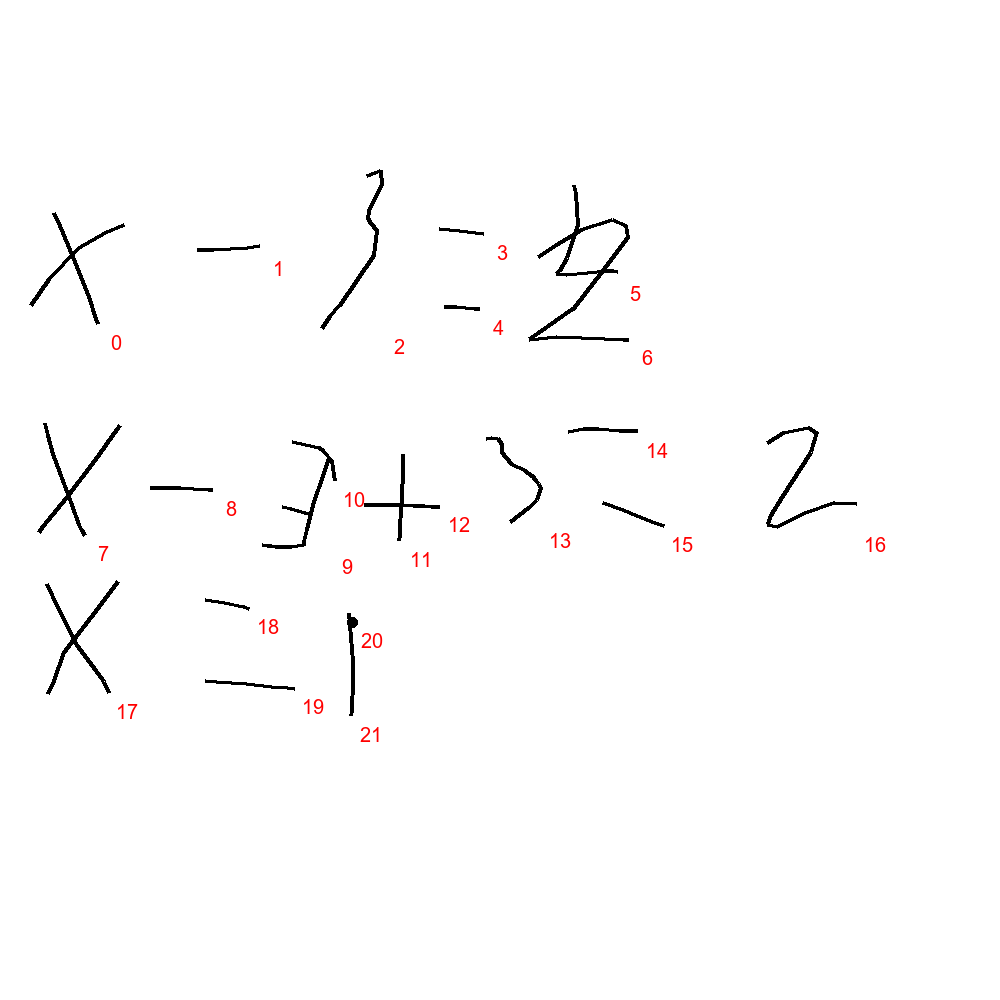 x - 3 = 2
0 1 2 3 4 5 6
x - 3 + 3 = 2
7 8 9 10 11 12 13 14 15 16
x = 1
17 18 19 20 21